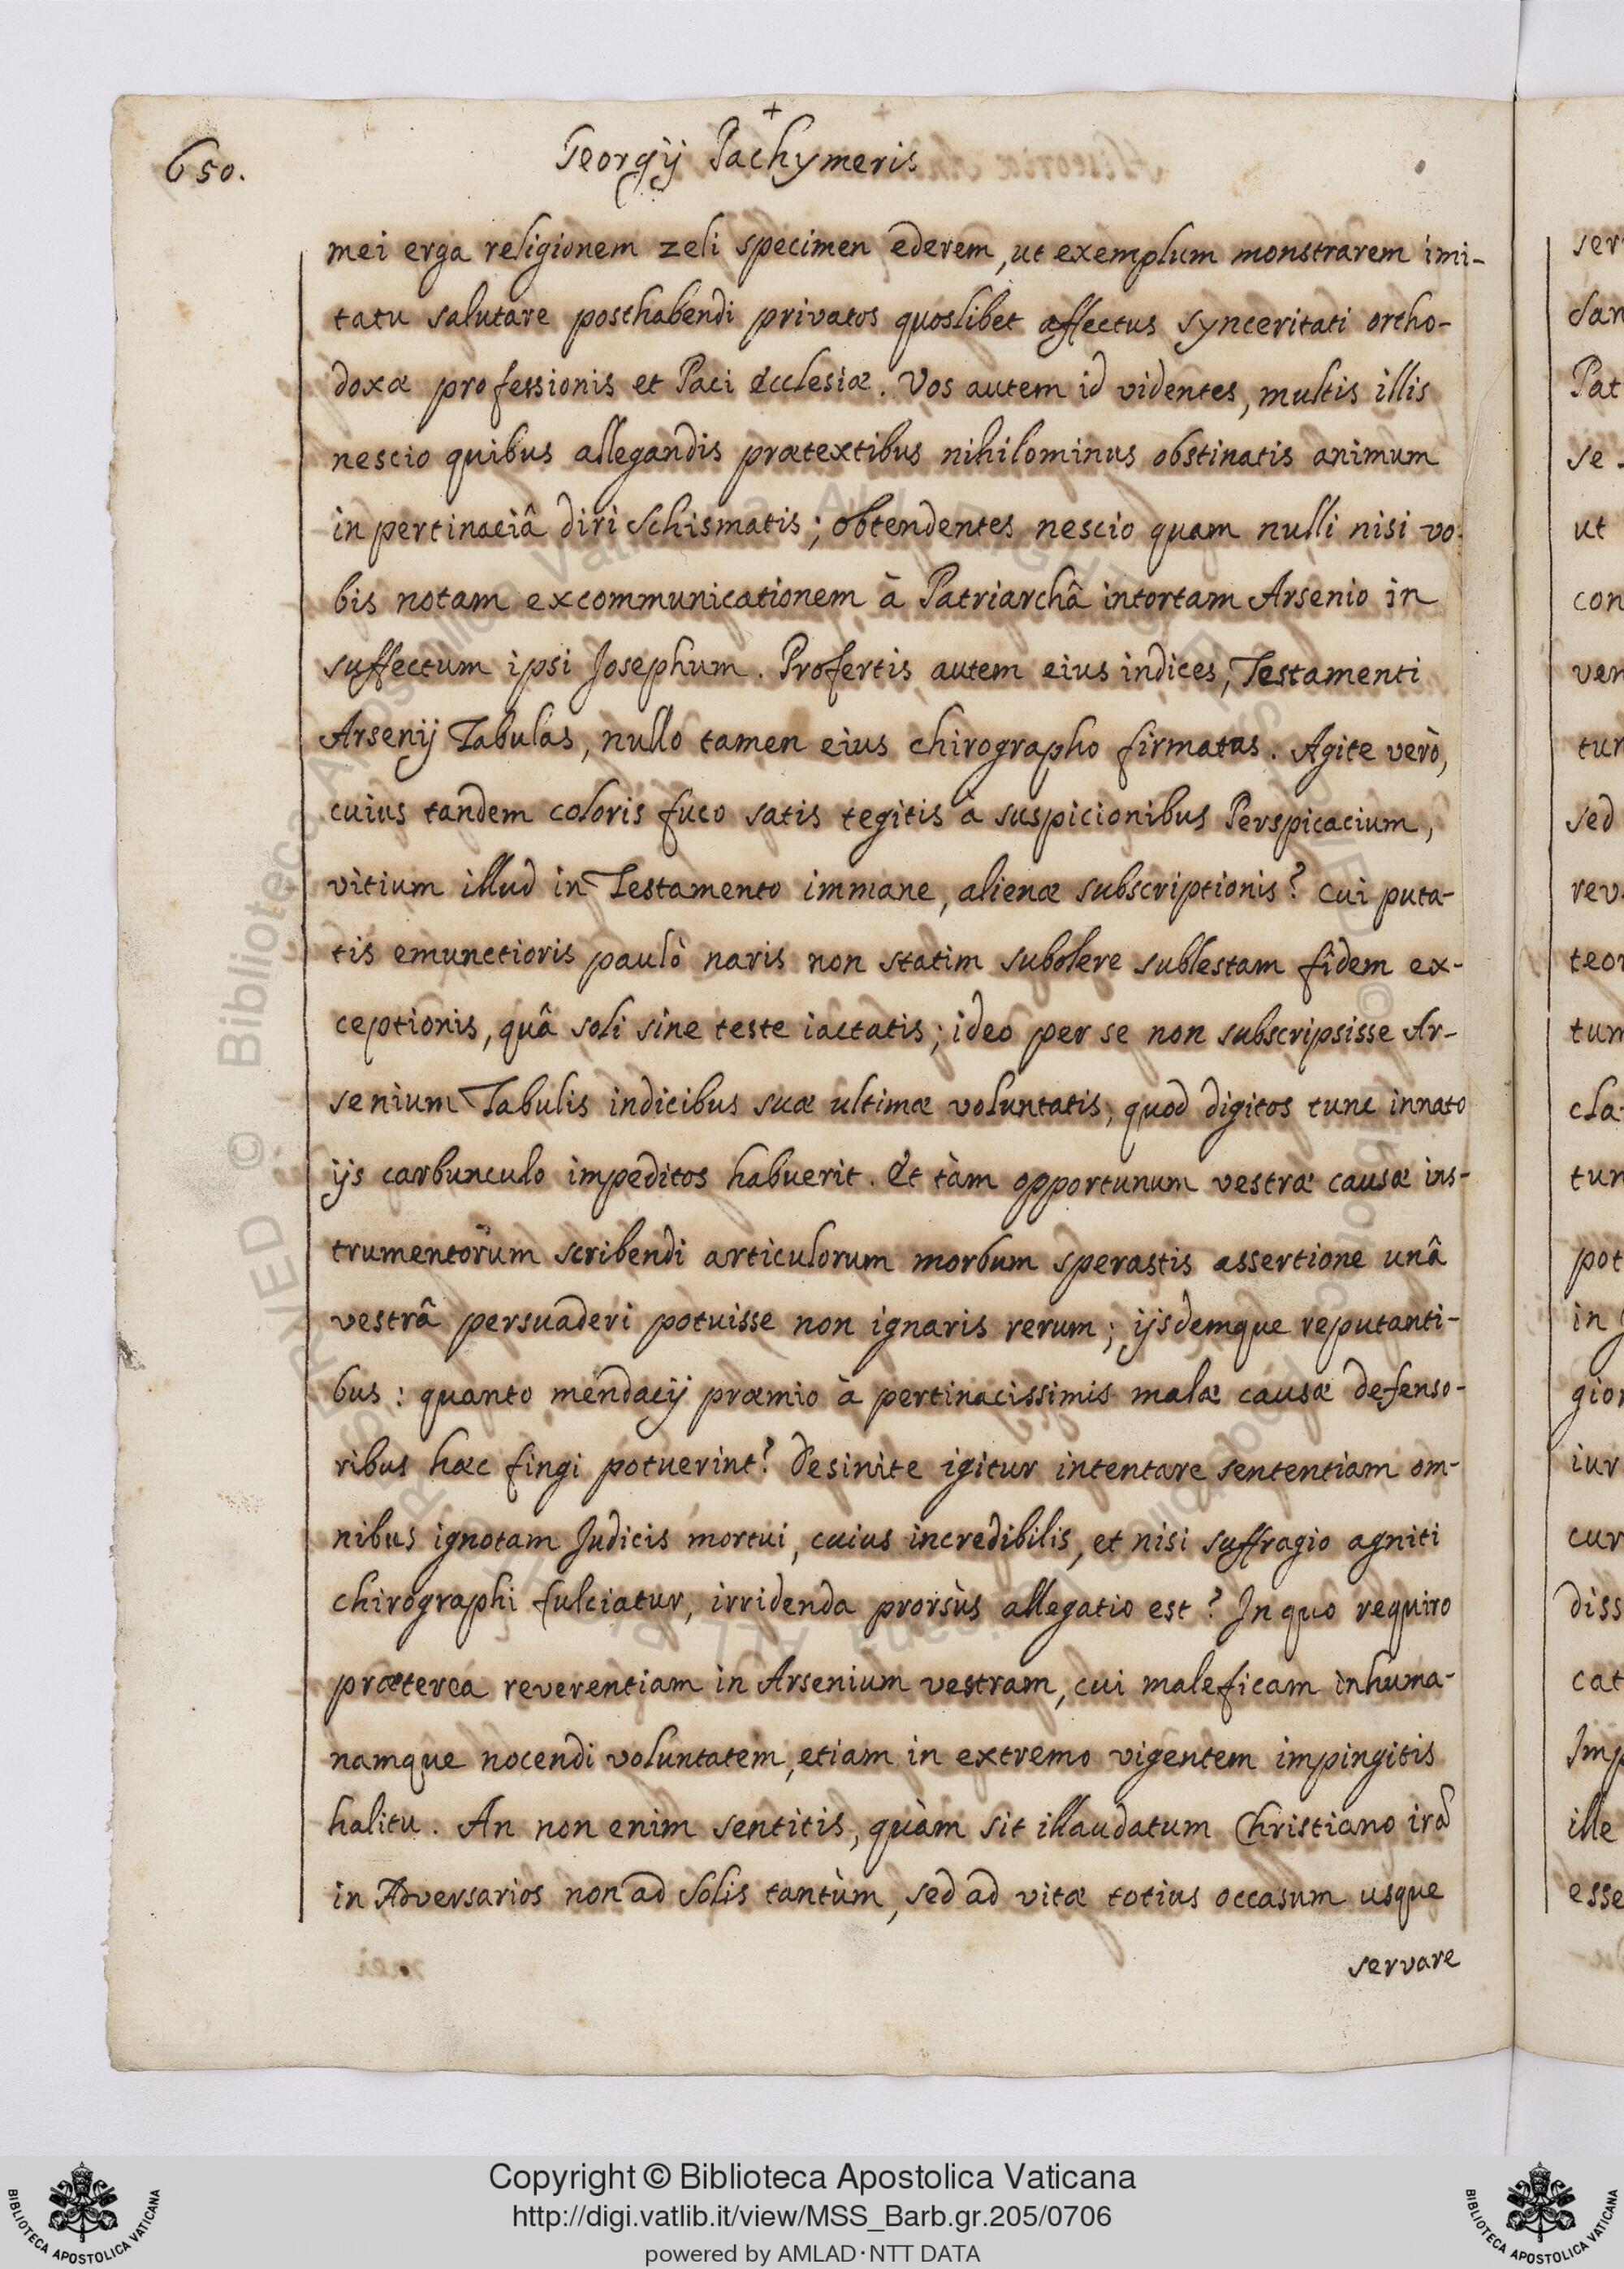 +
650.
Georgij Pachymeris
mei erga religionem zeli specimen ederem, ut exemplum monstrarem imi-
tatu salutare posthabendi privatos quoslibet affectus synceritati ortho-
doxæ professionis et Paci Ecclesiæ. Vos autem id videntes, multis illis
nescio quibus allegandis prætextibus nihilominus obstinatis animum
in pertinaciâ diri Schismatis; obtendentes nescio quam nulli nisi vo-
bis notam excommunicationem à Patriarchâ intortam Arsenio in
suffectum ipsi Josephum. Profertis autem eius indices, Testamenti
Arsenij Tabulas, nullo tamen eius chirographo firmatas. Agite verò,
cuius tandem coloris fuco satis tegitis à suspicionibus Perspicacium,
vitium illud in Testamento immane, alienæ subscriptionis? Cui puta-
tis emunctioris paulò naris non statim subolere sublestam fidem ex-
ceptionis, quâ soli sine teste iactatis; ideo per se non subscripsisse Ar-
senium Tabulis indicibus suæ ultimæ voluntatis, quod digitos tunc innato
ijs carbunculo impeditos habuerit. Et tàm opportunum vestræ causæ ins-
trumentorum scribendi articulorum morbum sperastis assertione unâ
vestrâ persuaderi potuisse non ignaris rerum; ijsdemque reputanti-
bus: quanto mendacij præmio à pertinacissimis malæ causæ defenso-
ribus hæc fingi potuerint? Desinite igitur intentare sententiam om-
nibus ignotam Judicis mortui, cuius incredibilis, et nisi suffragio agniti
chirographi fulciatur, irridenda prorsùs allegatio est? In quo requiro
præterea reverentiam in Arsenium vestram, cui maleficam inhuma-
namque nocendi voluntatem, etiam in extremo vigentem impingitis
halitu. An non enim sentitis, quàm sit illaudatum Christiano irâ
in Adversarios non ad Solis tantùm, sed ad vitæ totius occasum usque
servare
ser
dan
Pat
se
ut
con
ven
tur
sed
rev
teor
tum
cla
tur
pot
in
gion
iur
cur
diss
cat
Imp
ille
esse
Copyright © Biblioteca Apostolica Vaticana
http://digi.vatlib.it/view/MSS_Barb.gr.205/0706
powered by AMLAD·NTT DATA
BIBLIOTECA APOSTOLICA VATICANA
BIBLIOTECA APOSTOLICA VATICANA